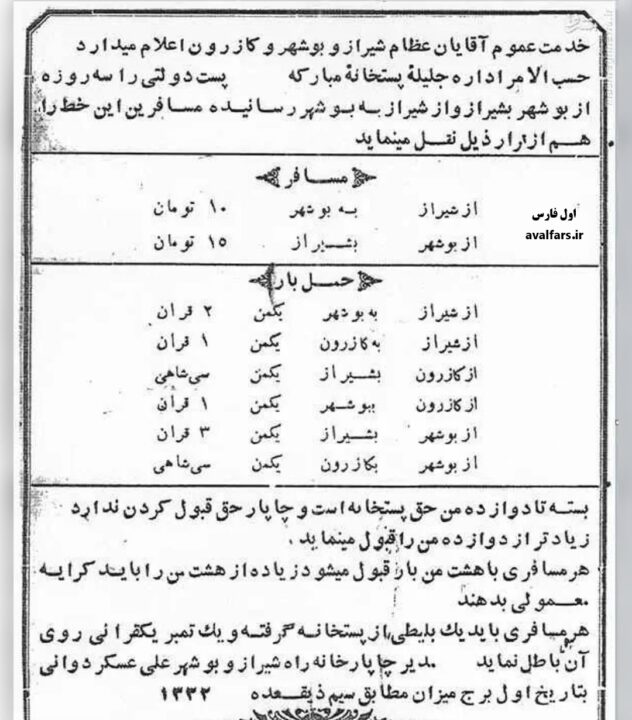 خدمت عموم آقایان عظام شیراز و بوشهر و کازرون اعلام میدارد
حسب الامر اداره جلیلهٔ پستخانهٔ مبارکه پست دولتی را سه روزه
از بوشهر بشیراز و از شیراز به بوشهر رسانیده مسافرین این خط را
هم از قرار ذیل نقل مینماید
مسافر
از شیراز به بوشهر ۱۰ تومان
از بوشهر بشیراز ۱۵ تومان
اول فارس
avalfars.ir
حمل بار
از شیراز به بوشهر یکمن ۲ قران
از شیراز به کازرون یکمن ۱ قران
از کازرون بشیراز یکمن سی شاهی
از کازرون ببوشهر یکمن ۱ قران
از بوشهر بشیراز یکمن ۳ قران
از بوشهر بکازرون یکمن سی شاهی
بسته تا دوازده من حق پستخانه است و چاپار حق قبول کردن ندارد
زیادتر از دوازده من را قبول مینماید .
هر مسافری با هشت من بار قبول میشود زیاده از هشت من را باید کرایه
معمولی بدهند
هر مسافری باید یک بلیطی از پستخانه گرفته و یک تمبر یکقرانی روی
آن باطل نماید مدیر چاپارخانه راه شیراز و بوشهر علی عسکر دوانی
بتاریخ اول برج میزان مطابق سیم ذیقعده ۱۳۳۲